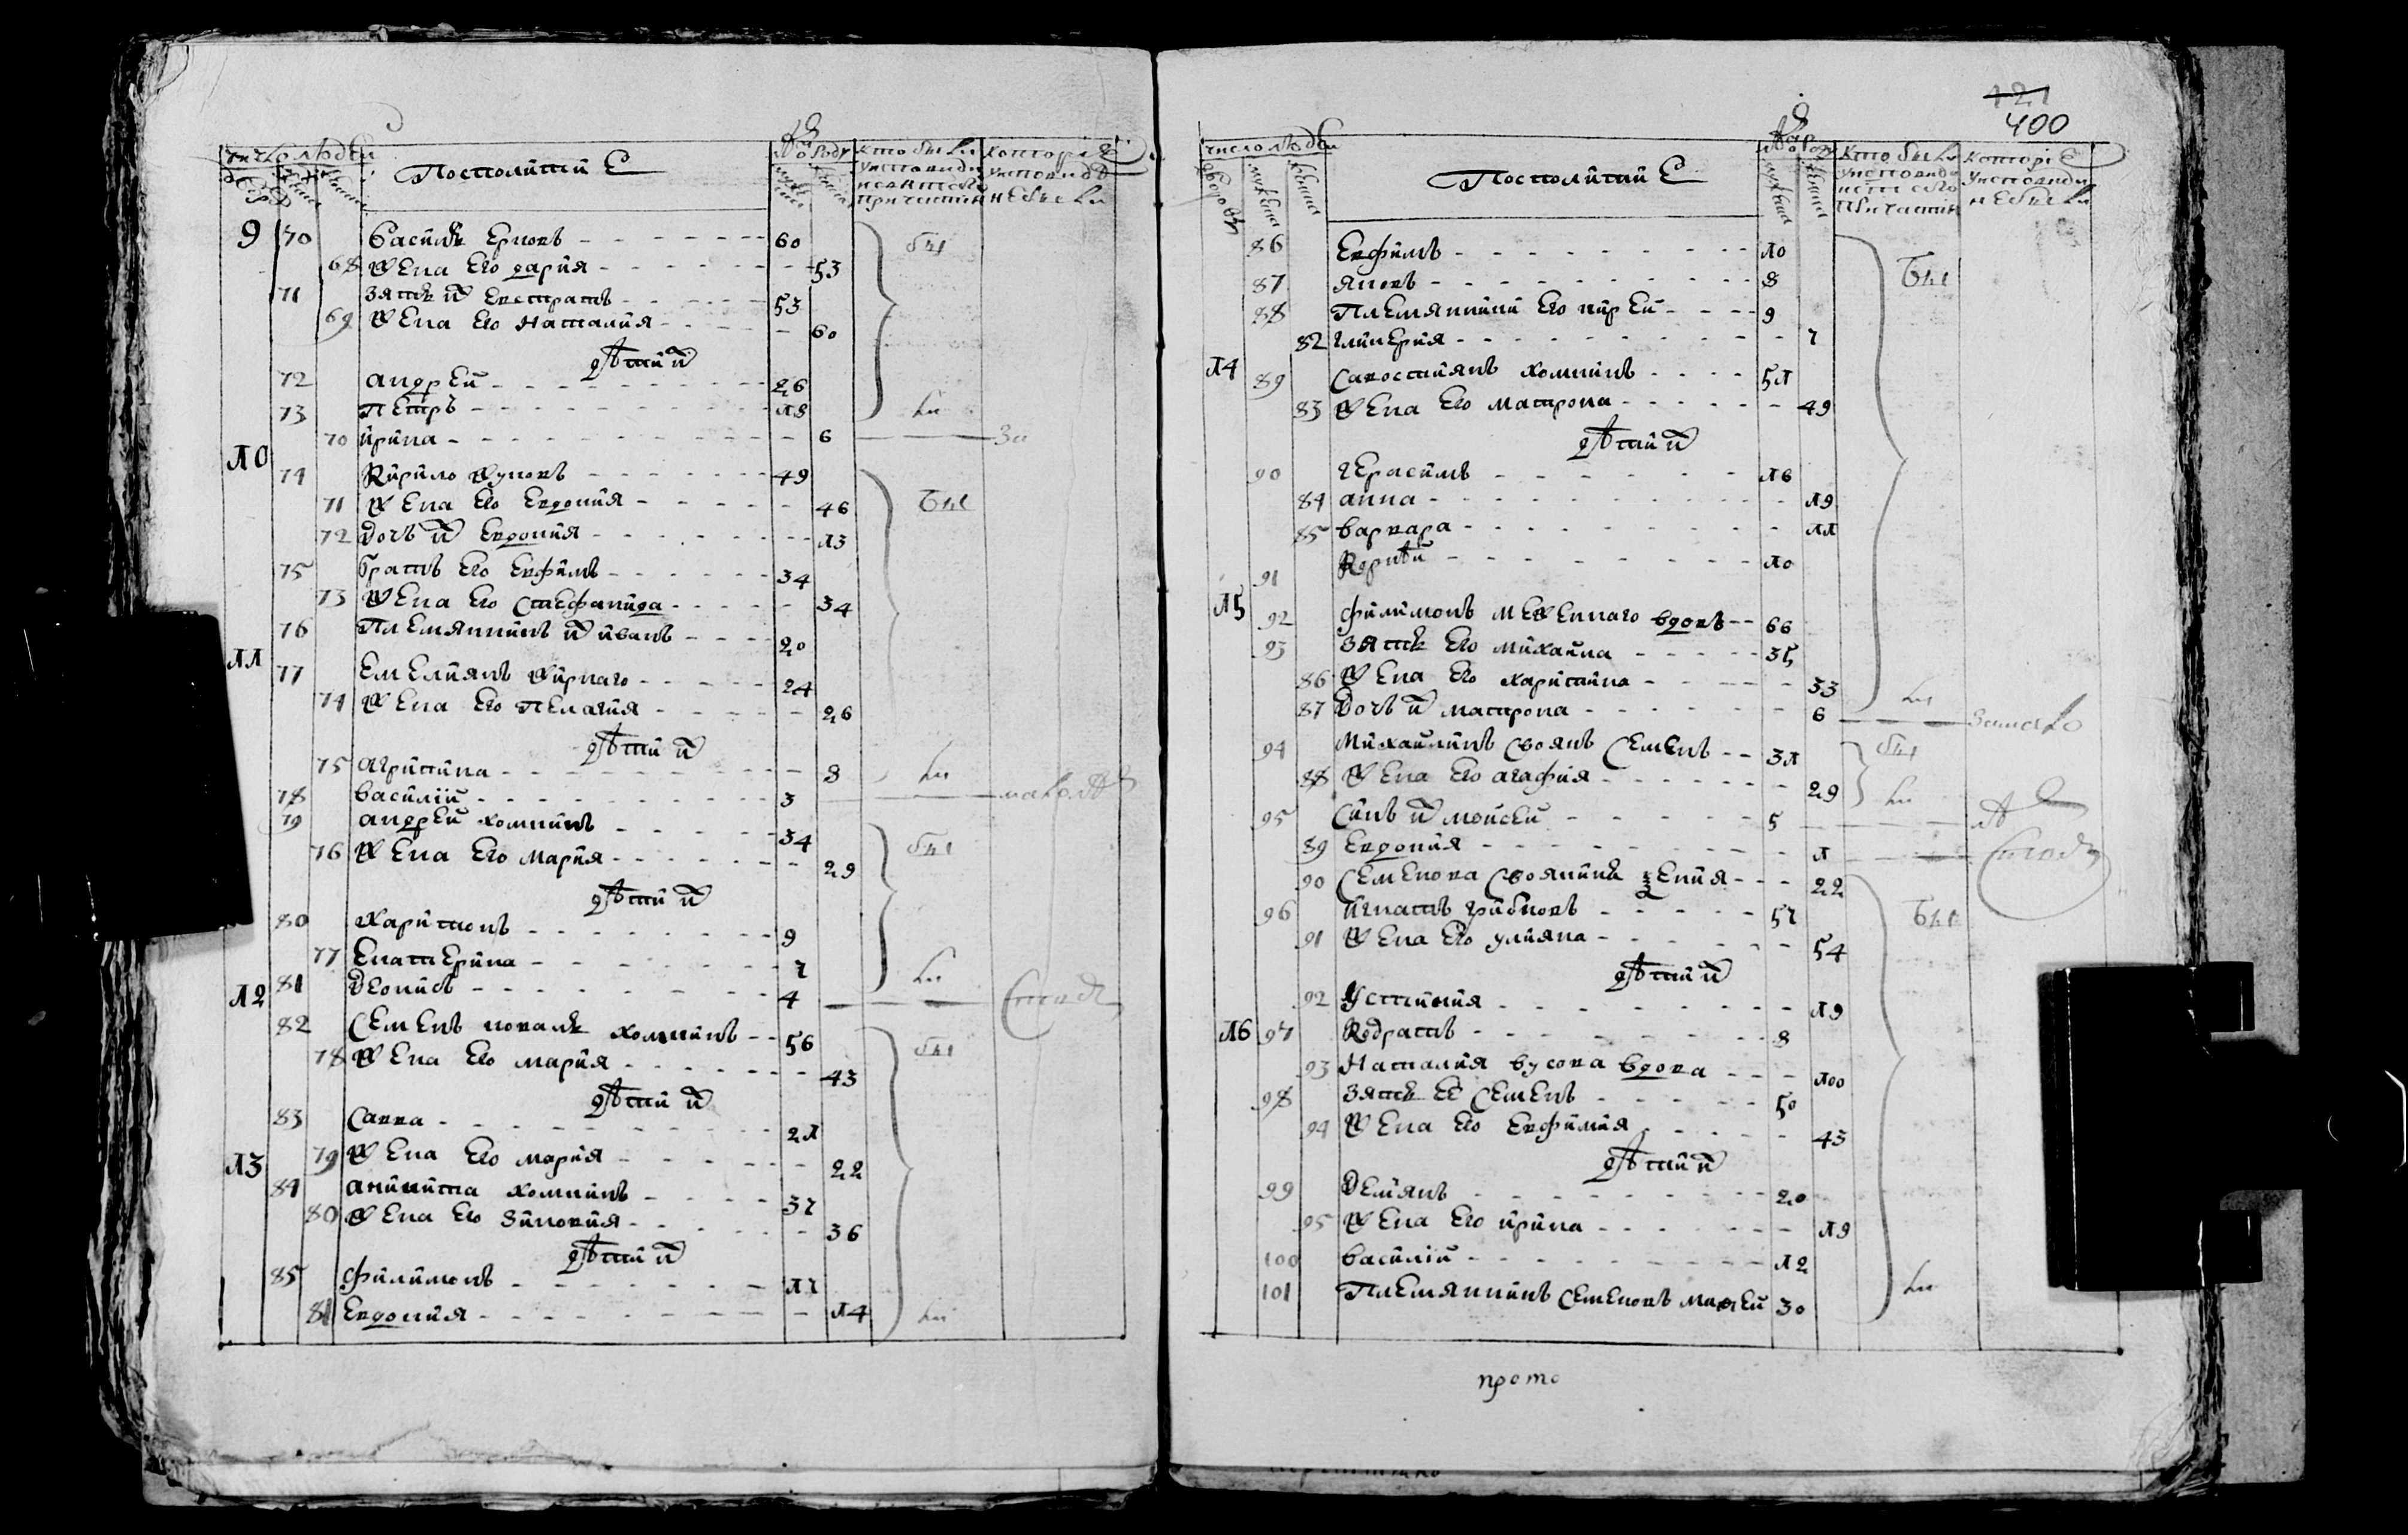 число людей
Посполитий Е
кто были у исповеди и святого причастия
которіе у исповеди не были
9 70 Василь Ерковъ 60 бы
68 Жена Его дария 53
71 Зять их Евстратъ 53
69 Жена Его Наталия 60
дѣти их
72 андрей 26
73 Петръ л8 ли
70 ирина 6 за
л0
74 Кирило Жуковъ 49
71 Жена Его Евдокия 46 бы
72 Дочъ их Евдокия л3
75 братъ Его Евфимъ 34
73 Жена Его Стефанида 34
76 Племянникъ их иванъ 20
лл
77 Емелиянъ Жирнаго 24
74 Жена Его Пелагия 26
дѣти их
75 агрипина 8 ли
78 василій 3 малолѣ
79 андрей хомкинъ 34
76 Жена Его Мария 29 бы
дѣти их
80 Харитонъ 9
77 Екатерина 7 ли
81 Деонисъ 4
л2
82 Семенъ коваль хомкинъ 56
78 Жена Его Мария 43 бы
дѣти их
83 Савва 2л
79 Жена Его Мария 22
л3
84 аникита хомкинъ 37
80 Жена Его Зиновия 36
дѣти их
85 Филимонъ л7
81 Евдокия л4 ли
121
400
число людей
Посполитий Е
кто были у исповеди и святого причастия
которіе у исповеди не были
86 Евфимъ л0
87 яковъ 8 Бы
88 Племянники Его кирей 9
82 гликерия 7
л4 89 Савостиянъ хомкинъ 5л
83 Жена Его Матрона 49
дѣти их
90 герасимъ л6
84 анна л9
85 варвара лл
91 Кернѣй л0
л5 92 Филимонъ Меженнаго вдовъ 66
93 Зять Его михаила 35
86 Жена Его харитина 33
87 Дочъ их матрона 6 ли
94 Михайликъ Своякъ Семенъ 3л бы
88 Жена Его агафия 29 ли
95 Синъ их мойсей 5 лѣ
89 Евдокия л
90 Семенова Своячинь Ѯения 22
96 игнатъ грибковъ 57 Бы
91 Жена Его улияна 54
дѣти их
92 Устиния л9
л6 97 Кодратъ 8
93 Наталия вусова вдова л00
98 Зять Её Семенъ 50
94 Жена Его Евфимия 43
дѣти их
99 Демянъ 20
95 Жена Его ирина л9
100 василій л2
101 Племянникъ Семеновъ Матвей 30 ли